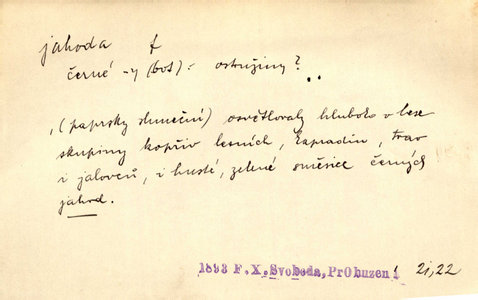 jahoda f
černé -y (bot): ostružiny?
„(paprsky sluneční) osvětlovaly hluboko v lese
skupiny kopřiv lesních, kapradin, trav
i jalovců, i husté, zelené směsice černých
jahod.
1893 F.X.Svoboda, Probuzení 2i,22